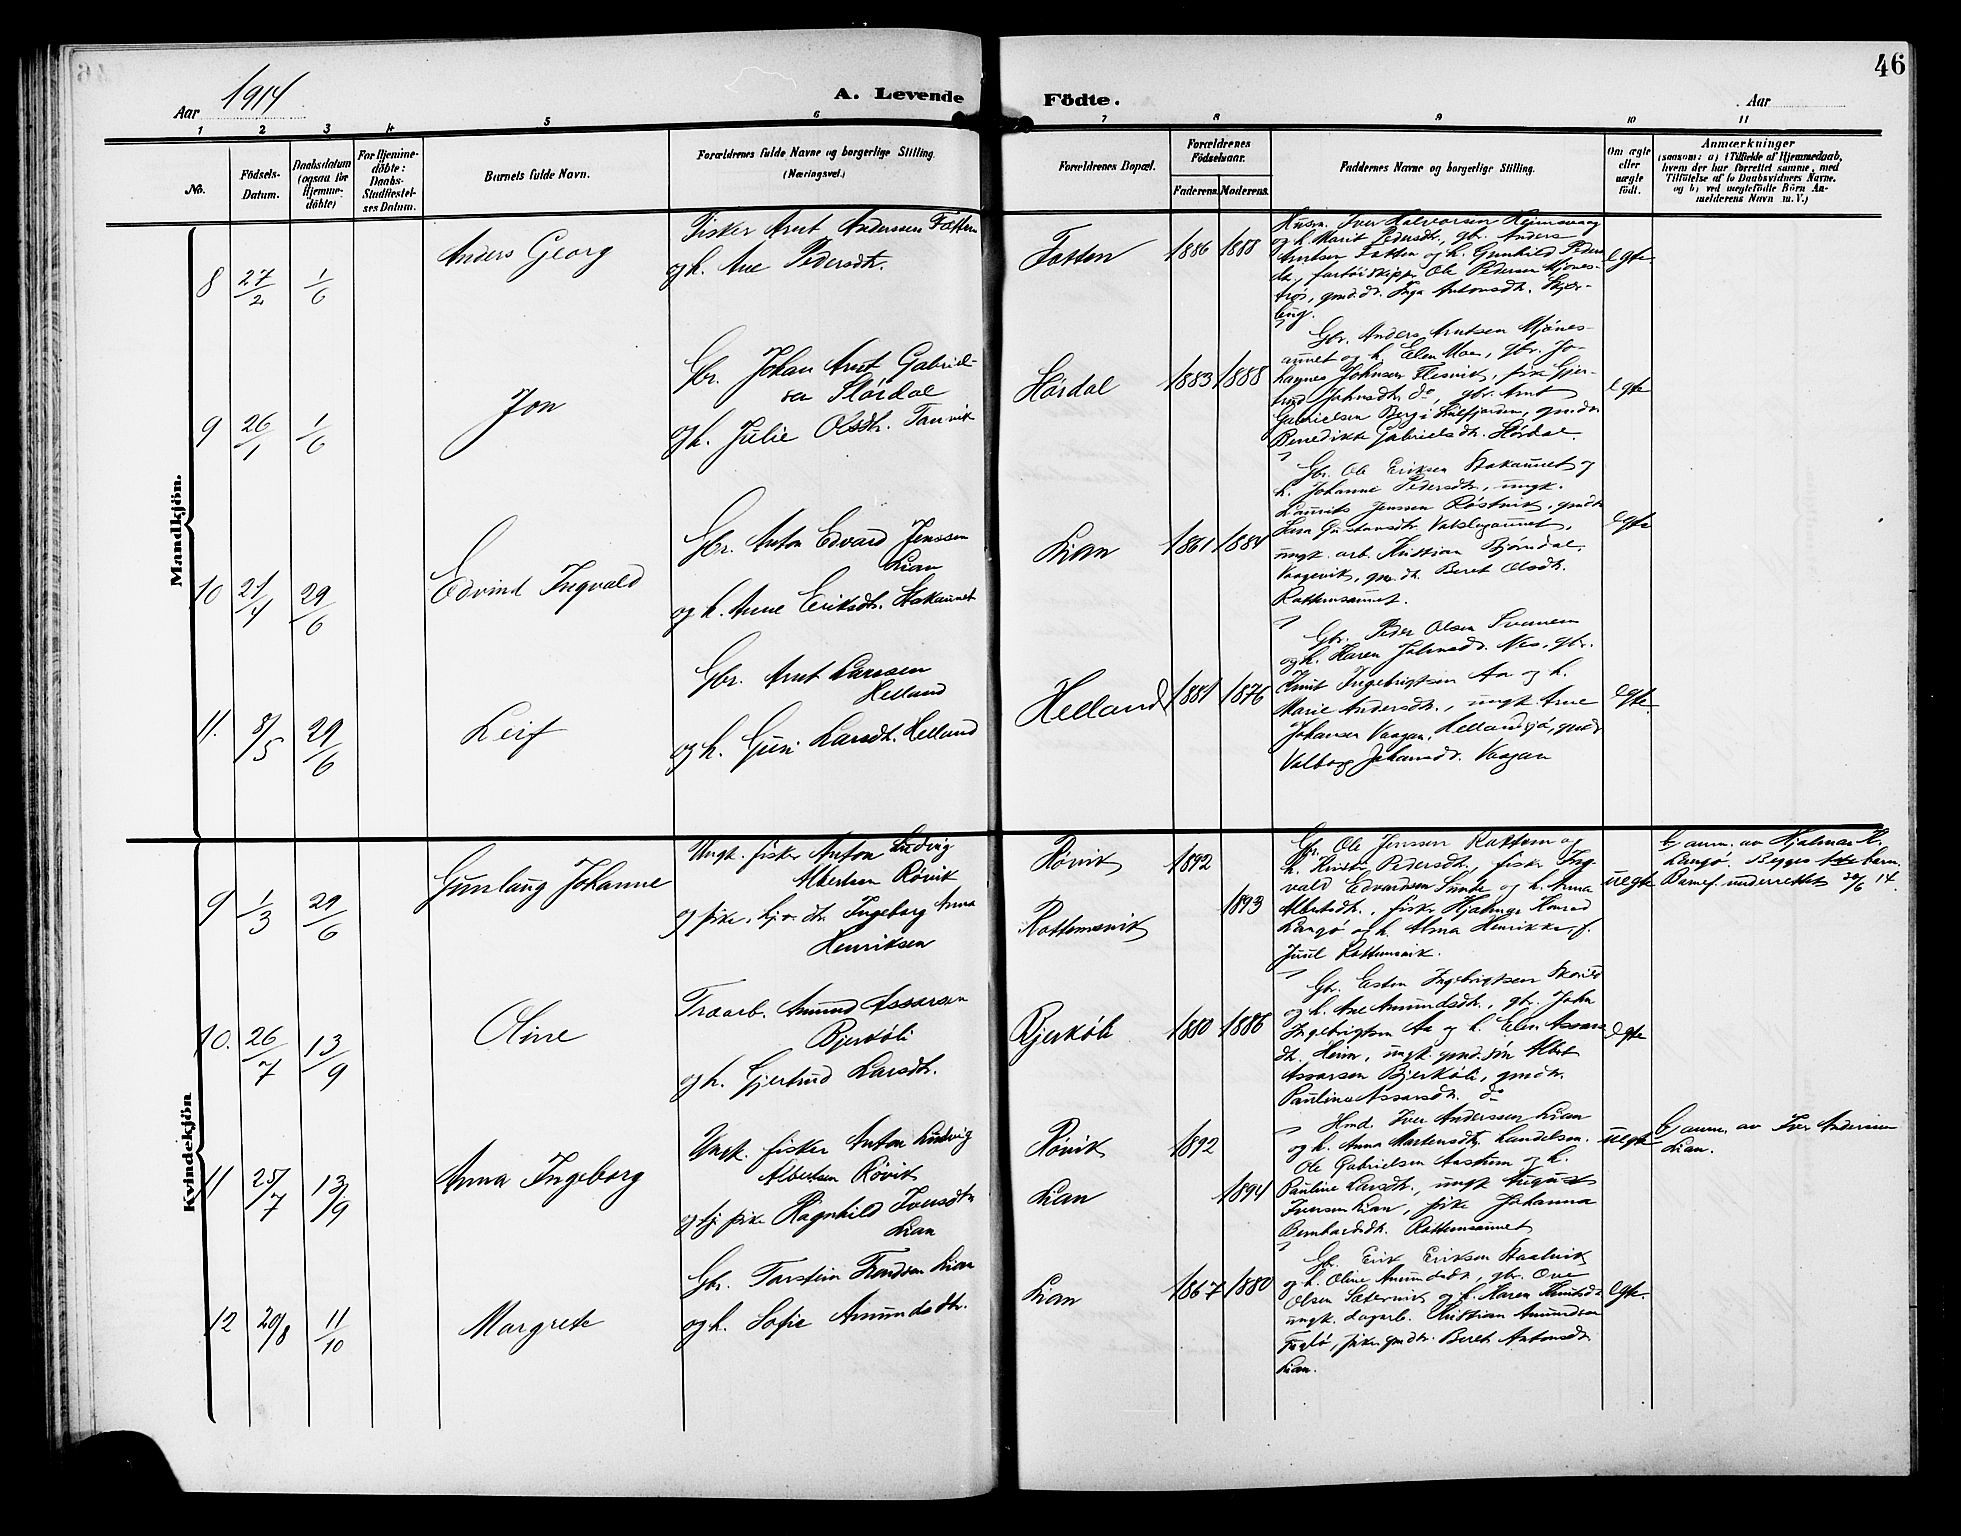 46
Aar 1914
A. Levende Födte.
Aar
1 2 3 4 5 6 7 8 9 10 11
No.
Födsels-
Datum.
Daabsdatum
(ogsaa for
Hjemme-
döbte)
For Hjemme-
döbte:
Daabs-
Stadfæstel-
ses Datum.
Barnets fulde Navn.
Forældrenes fulde Navne og borgerlige Stilling.
(Næringsvei.)
Forældrenes Bopæl.
Forældrenes
Födselsaar.
Faderens.
Moderens.
Faddernes Navne og borgerlige Stilling.
Om ægte
eller
uægte
födt.
Anmærkninger
(saasom: a) i Tilfælde af Hjemmedaab,
hvem der har forrettet samme, med
Tilföielse af to Daabsvidners Navne,
og b) ved uegtefödte Börn An-
melderens Navn m. V.)
Mandkjön.
8 27/2 1/6
Anders Georg
Fisker Arnt Anderssen Fætten
og h. Ane Pedersdtr.
Fætten
1886 1888
Husm. Iver Halvorsen
og h. Marit Pedersdtr., gbr. Anders
Arntsen Fætten og h. Gunhild Peders-
Ole Pedersen Mjønes-
Inga Antonsdtr.
egte
9 26/1 1/6
Jon
Gbr. Johan Arnt Gabriel-
sen Slørdal
og h. Julie Olsdtr. Tanvik
Slørdal
1883 1888
Gbr. Anders Arntsen Mjønes-
aunet og h. Elen Moe, gbr. Jo-
hannes Johnsen Flesvik, pike Gjer-
trud Johnsdtr. do, gbr. Arnt
Gabrielsen Berg i
Benedikte Gabrielsdtr. Slørdal.
egte
10 21/4 29/6
Edvind Ingvald
Gbr. Anton Edvard Jenssen
Lian
og h. Anne Eriksdtr. Stokaunet
Lian
1861 1884
Gbr. Ole Eriksen Stokaunet og
h. Johanne Pedersdtr., ungk.
Laurits Jenssen Røstvik, gmdtr
Gustavsdtr.
ungk. arb. Kristian Bjørndal,
Vaagevik, gmdtr. Beret Olsdtr.
Rottemsaunet.
egte
11. 8/5 29/6
Leif
Gbr. Arnt Larssen
Helland
og h. Guri Larsdtr. Helland
Helland
1881 1876
Gbr. Peder Olsen Svanem
og h. Karen Nes, gbr.
Knut Ingebrigtsen Aa og h.
Marie Andersdtr., ungk. Arne
Johansen Vaagan, Hellandsjø, gmdtr
Valborg Johansdtr. Vaagan
egte
Kvindekjön
9 1/3 29/6
Gunlaug Johanne
Ungk. fisker Anton Ludvig
Albertsen Røvik
og pike, gbr. dtr. Ingeborg Anna
Henriksen
Røvik
Rottemsvik
1892
1893
Gbr. Ole Jenssen Rottem og
h. Kirstie Pedersdtr., fisker Ing-
vald Edvardsen Sunde og h. Anna
Albertsdtr., fisker Hjalmar Konrad
Langø og h. Alma Henrikke, f.
Juul Rottemsvik.
uegte
Gj. anm. av Hjalmar K.
Langø. Begges 1ste barn.
underrettet 20/6 14.
10. 26/7 13/9
Oline
Træarb. Amund Assarsen
Bjerkøli
og h. Gjertrud Larsdtr.
Bjerkøli
1880 1886
Gbr. Esten Ingebrigtsen
og h. Ane Amundsdtr., gbr. John
Ingebrigtsen Aa og h. Elen Assars-
dtr. Heim, ungk. gmd.søn Albert
Assarsen Bjerkøli, gmdtr.
Pauline Assarsdtr. do
egte
11 25/7 13/9
Anna Ingeborg
Ungk. fisker Anton Ludvig
Albertsen Røvik
og tj. pike Ragnhild Iversdtr
Lian
Røvik
Lian
1892
1894
Hmd. Iver Anderssen Lian
og h. Anna Martensdtr, handelsm.
Ole Gabrielsen Aastum og h.
Pauline Larsdtr., ungk August
Iversen Lian, pike Johanna
Bernhardsdtr. Rottemsaunet
uegte
Gj. anm. av Iver Anderssen
Lian.
12 29/8 11/10
Margrete
Gbr. Torstein Trondsen Lian
og h. Sofie Amundsdtr.
Lian
1867 1880
Gbr. Erik Eriksen Staalvik
og h. Oline Amundsdtr, gbr. Ove
Olsen Sætervik og h. Karen
ungk. dagarb. Kristian Amundsen
Fuglø, pike gmdtr. Beret Antonsdtr
Lian.
egte.